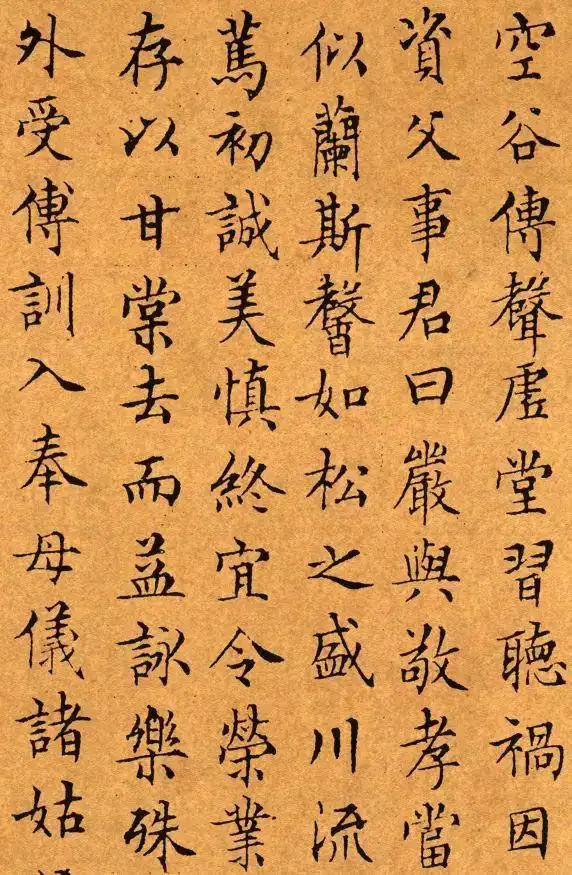 空谷傳聲虛堂習聽禍因
資父事君曰嚴與敬孝當
似蘭斯馨如松之盛川流
篤初誠美慎終宜令榮業
存以甘棠去而益詠樂殊
外受傅訓入奉母儀諸姑